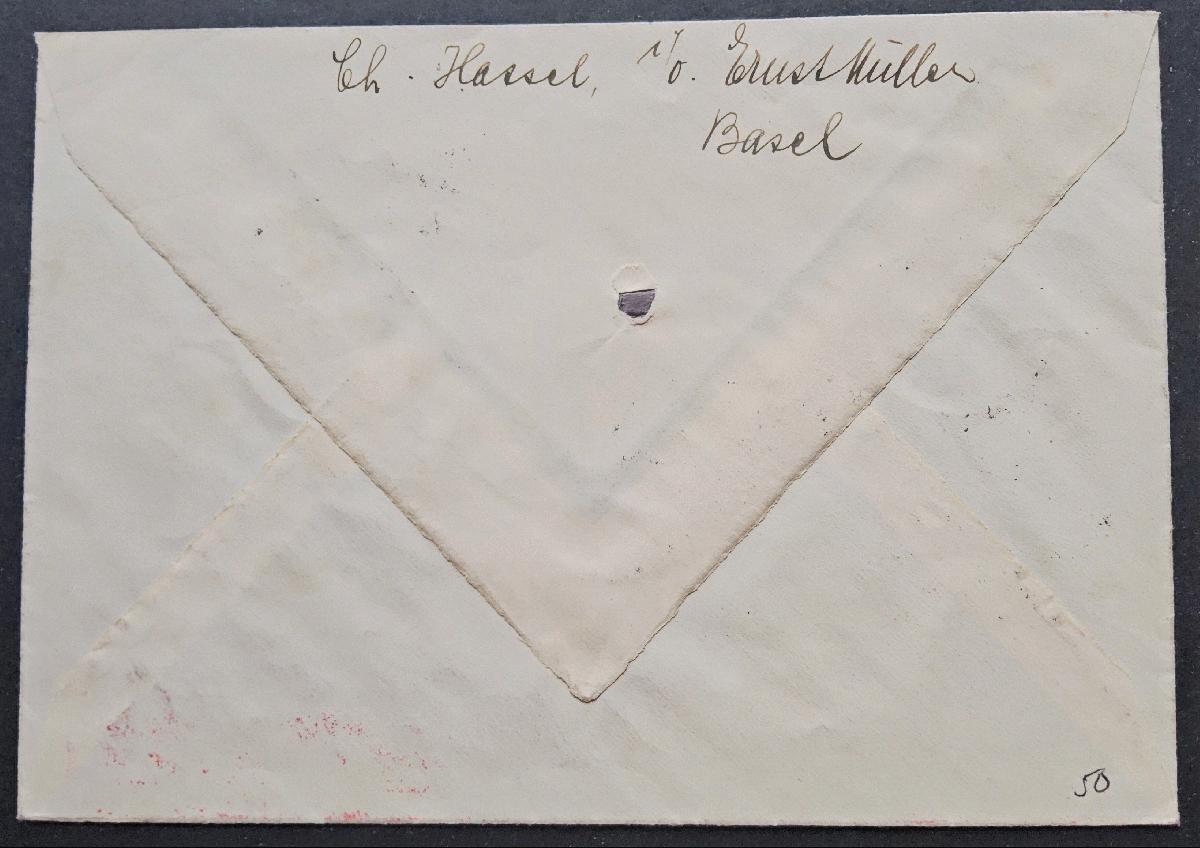 Ch. Hassel, c/o. Ernst Müller
Basel
50